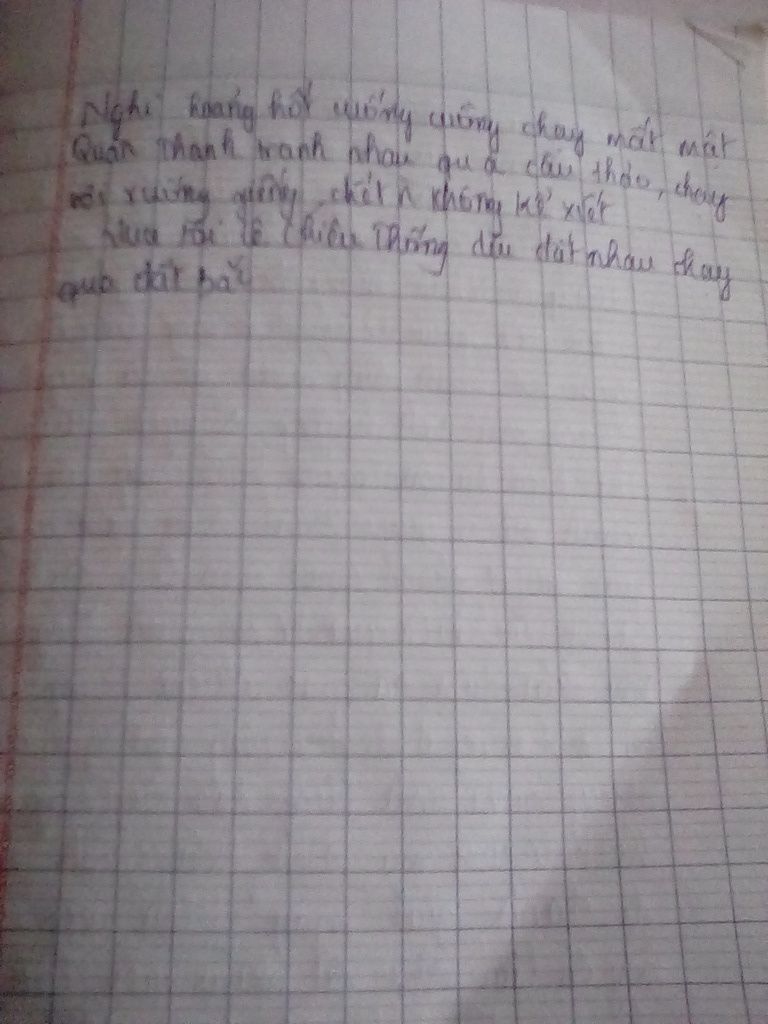 Nghị hoảng hốt cuống cuồng chạy mất mật
Quân Thanh tranh nhau qua cầu tháo, chạy
rơi xuống sông, chết n không kể xiết
Vua tôi Lê Chiêu Thống dìu dắt nhau chạy
qua đất bắc